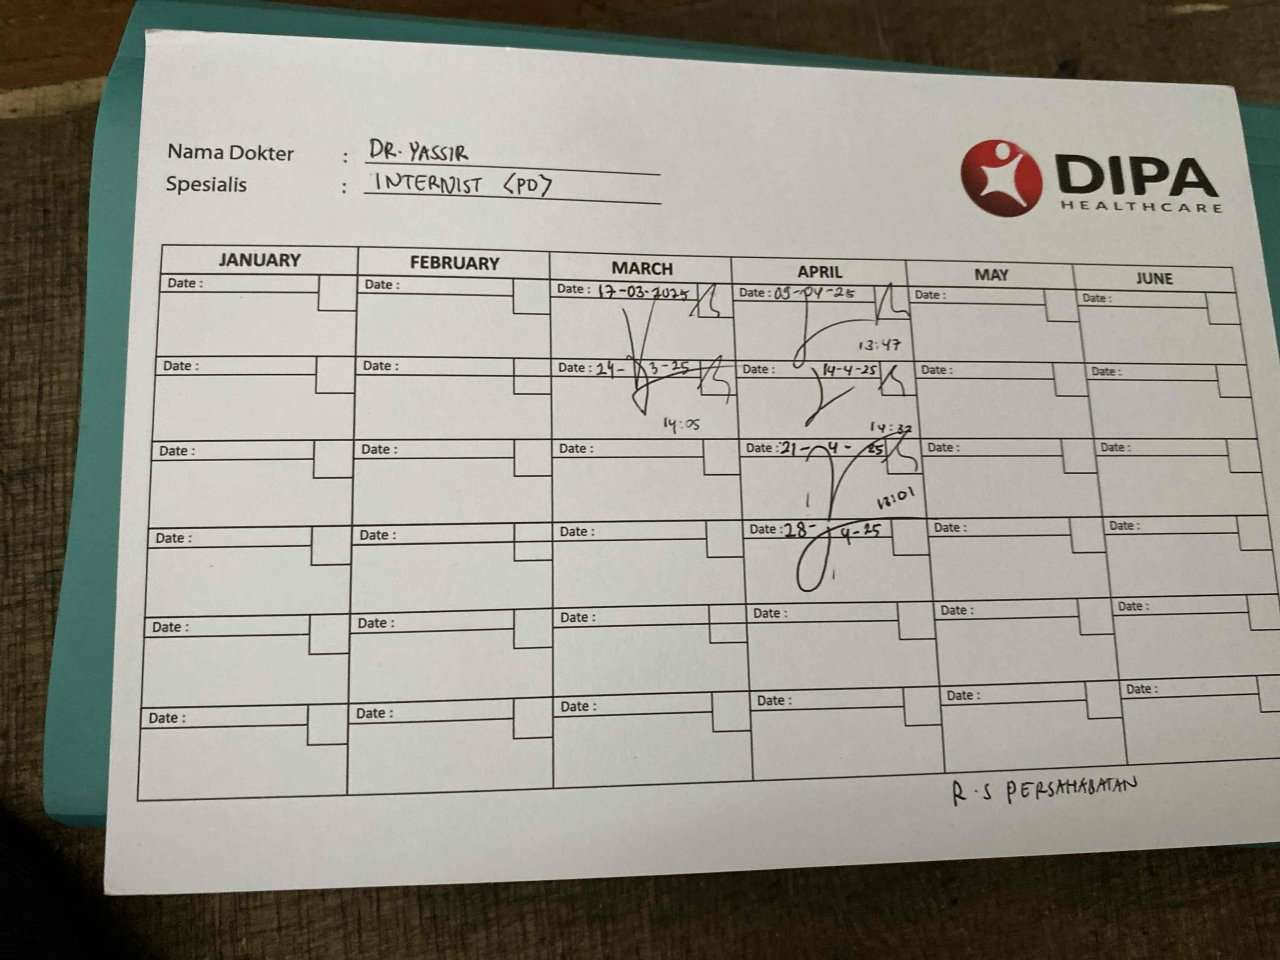 Nama Dokter : DR. YASSIR
Spesialis : INTERNIST (PD)
DIPA
HEALTHCARE
JANUARY FEBRUARY MARCH APRIL MAY JUNE
Date : Date : Date : 17-03-2025 Date : 03-04-25 Date : Date :
13:47
Date : Date : Date : 24-3-25 Date : 14-4-25 Date : Date :
14:05 14:32
Date : Date : Date : Date : 21-4-25 Date : Date :
13:01
Date : Date : Date : Date : 28-4-25 Date : Date :
Date : Date : Date : Date : Date : Date :
Date : Date : Date : Date : Date : Date :
R.S PERSAHABATAN